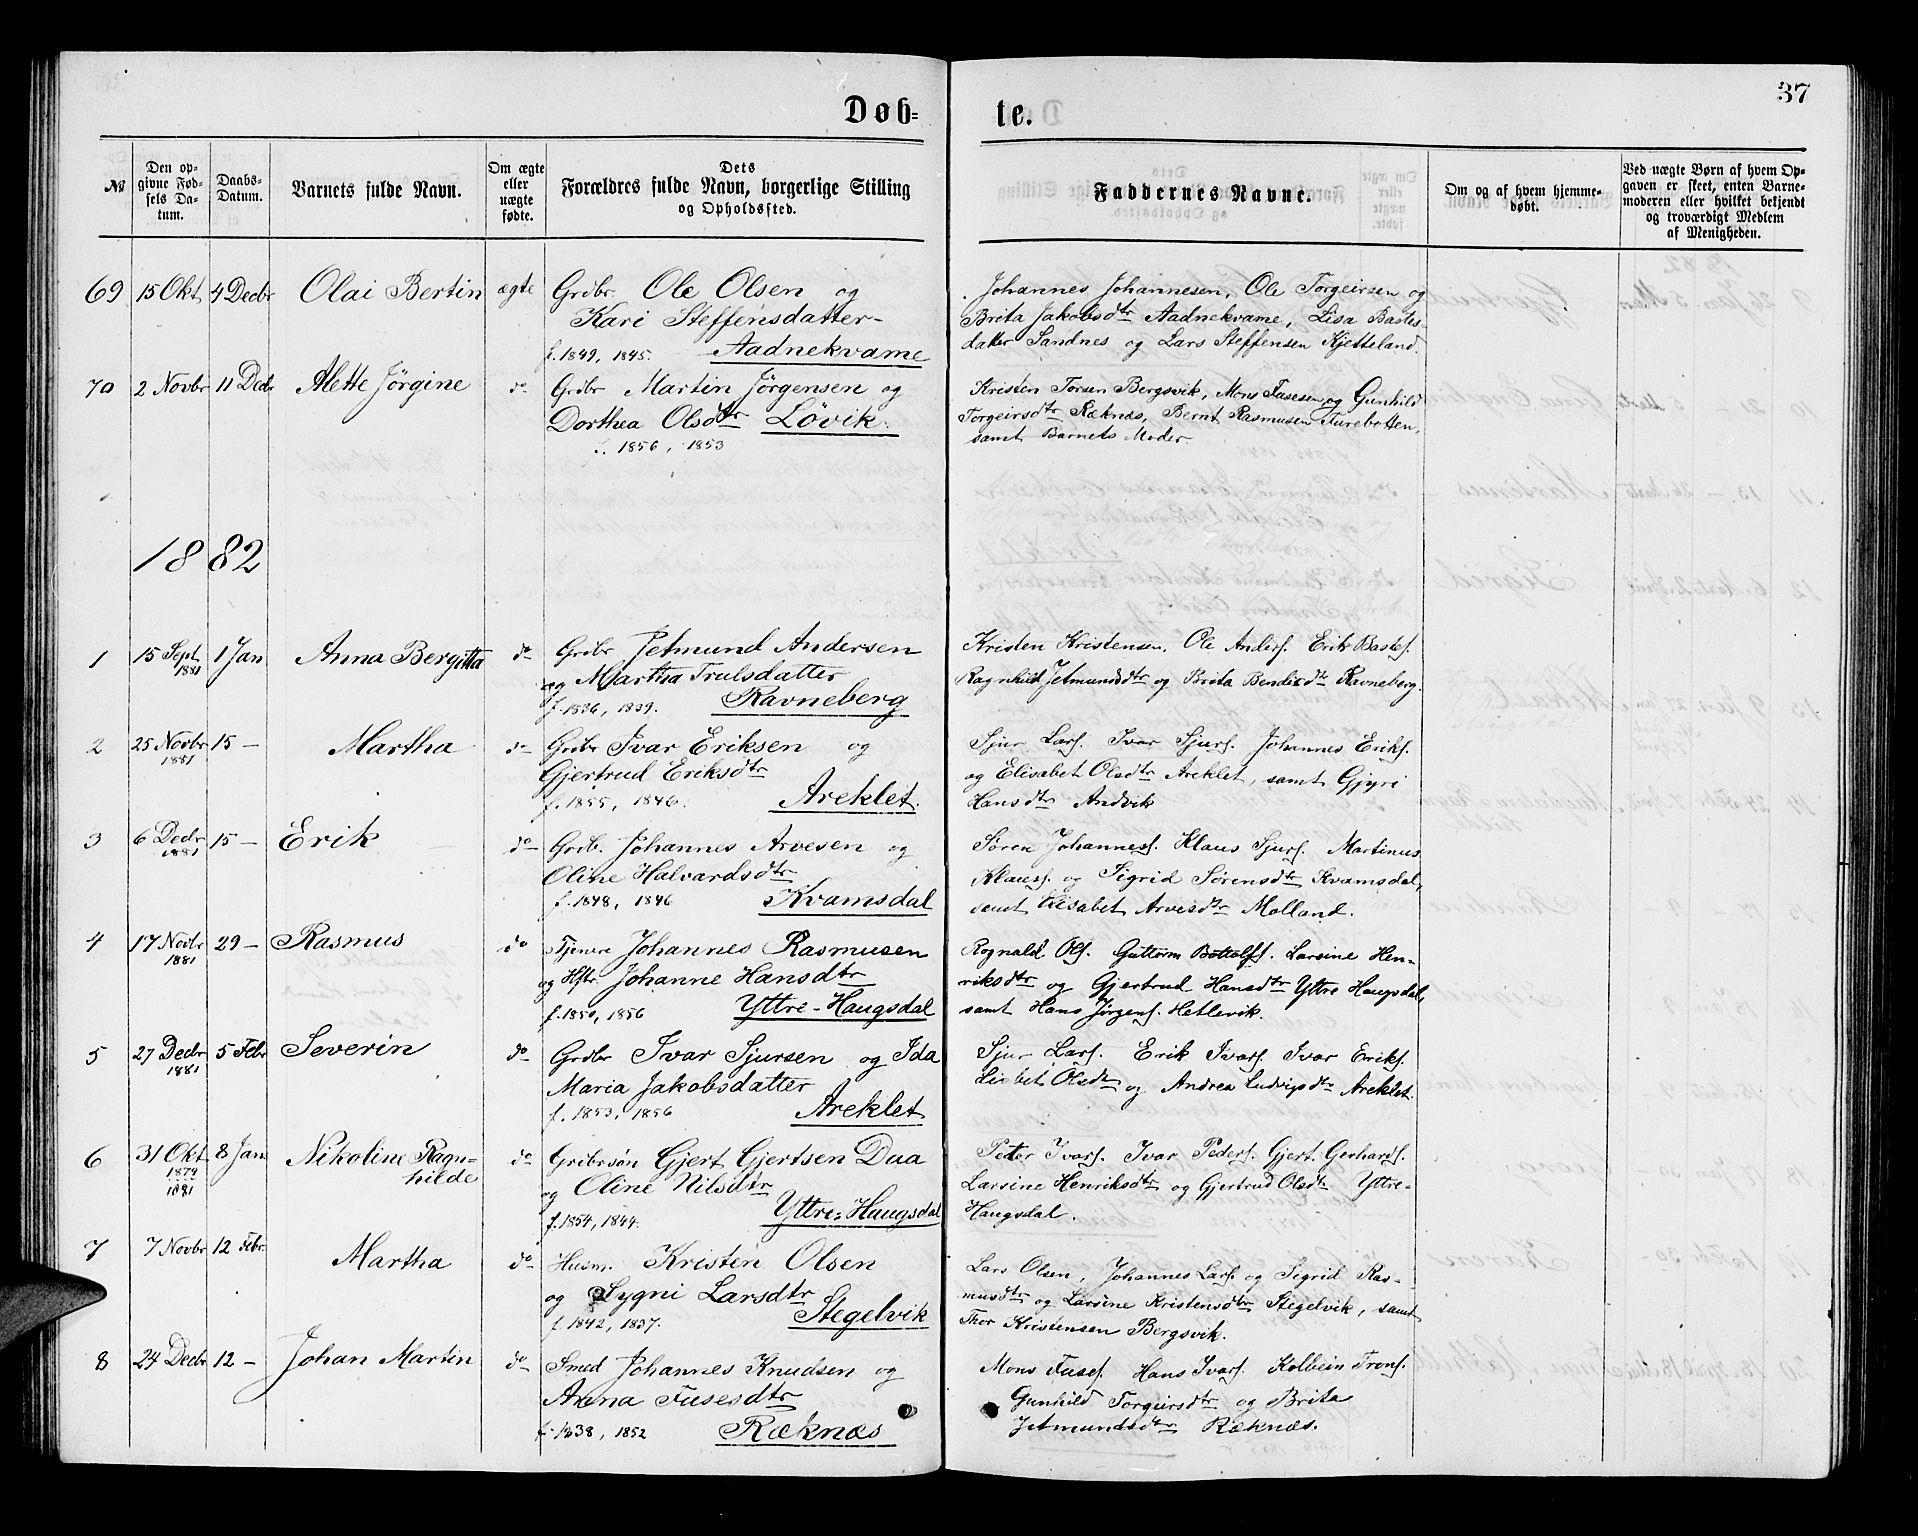 37
Døb=
te.
№
Den op-
givne Fød-
sels Da-
tum.
Daabs-
Datum.
Barnets fulde Navn.
Om ægte
eller
uægte
fødte.
Dets
Forældres fulde Navn, borgerlige Stilling
og Opholdssted.
Faddernes Navne.
Om og af hvem hjemme-
døbt.
Ved uægte Børn af hvem Op-
gaven er skeet, enten Barne-
moderen eller hvilket bekjendt
og troværdigt Medlem
af Menigheden.
69 15 Okt 4 Decbr Olai Bertin ægte Grdbr. Ole Olsen og
Kari Steffensdatter-
f. 1849, 1845. Aadnekvame
Johannes Johannesen, Ole Torgeirsen og
Brita Jakobsdtr Aadnekvame, Lisa Bastes-
datter Sandnes og Lars Steffensen Kjetteland.
70 2 Novbr 11 Decbr Alette Jörgine do Grdbr Martin Jörgensen og
Dorthea Olsdtr Lövik.
f. 1856, 1853
Kristen Torsen Bergsvik, Mons Fusesen og Gunhild
Torgeirsdtr Ræknæs, Bernt Rasmusen Turebotten,
samt Barnets Moder.
1882
1 15 Sept 1 Jan Anna Bergitta do Grdbr Jetmund Andersen
1881
og Martha Trulsdatter
f. 1836, 1839. Ravneberg
Kristen Kristensen. Ole Anders. Erik Bastes.
Ragnhild Jetmundsdtr og Brita Bendixdtr Ravneberg.
2 25 Novbr 15 — Martha do Grdbr Ivar Eriksen og
1881
Gjertrud Eriksdtr
f. 1855, 1846. Areklet.
Sjur Lars. Ivar Sjurs. Johannes Eriks.
og Elisabet Olsdtr Areklet, samt Gjyri
Hansdtr Andvik
3 6 Decbr 15 — Erik do Grdb. Johannes Arvesen og
1881
Oline Halvardsdtr
f. 1848, 1846 Kvamsdal
Søren Johanness. Klaus Sjurs. Martinus
Klauss. og Sigrid Sørensdtr Kvamsdal,
samt Elisabet Arvesdtr Molland.
4 17 Novbr 29 — Rasmus do Tjener Johannes Rasmusen
1881
og Hstr. Johanne Hansdtr
f. 1850, 1856 Yttre-Haugsdal
Rognald Ols. Guttorm Bottolfs. Larsine Hen-
riksdtr og Gjertrud Hansdtr Yttre Haugsdal,
samt Hans Jörgens. Hetlevik.
5 27 Decbr 5 Febr Severin do Grdbr Ivar Sjursen og Ida
1881
Maria Jakobsdatter
f. 1853, 1856 Areklet
Sjur Lars. Erik Ivars. Ivar Eriks.
Lisbet Olsdtr og Andrea Ludvigsdtr Areklet.
6 31 Okt 8 Jan Nikoline Ragn=
1879
1881
hilde
do Grdbrsøn Gjert Gjertsen Dua
og Oline Nilsdtr
f. 1854, 1844. Yttre=Haugsdal
Peder Ivars. Ivar Peders. Gjert Gerhards.
Larsine Henriksdtr og Gjertrud Olsdtr Yttre-
Haugsdal.
7 7 Novbr 12 Febr. Martha do Husm. Kristen Olsen
og Sygni Larsdtr
f. 1842, 1837. Stegelvik
Lars Olsen, Johannes Lars. og Sigrid Ras-
musdtr og Larsine Kristensdtr Stegelvik, samt
Thor Kristensen Bergsvik.
8 24 Decbr 12 — Johan Martin do Smed Johannes Knudsen og
Anna Fusesdtr
f. 1838, 1852 Ræknæs
Mons Fuses. Hans Ivars. Kolbein Trons.
Gunhild Torgeirsdtr og Brita
Jetmundsdtr Ræknæs.